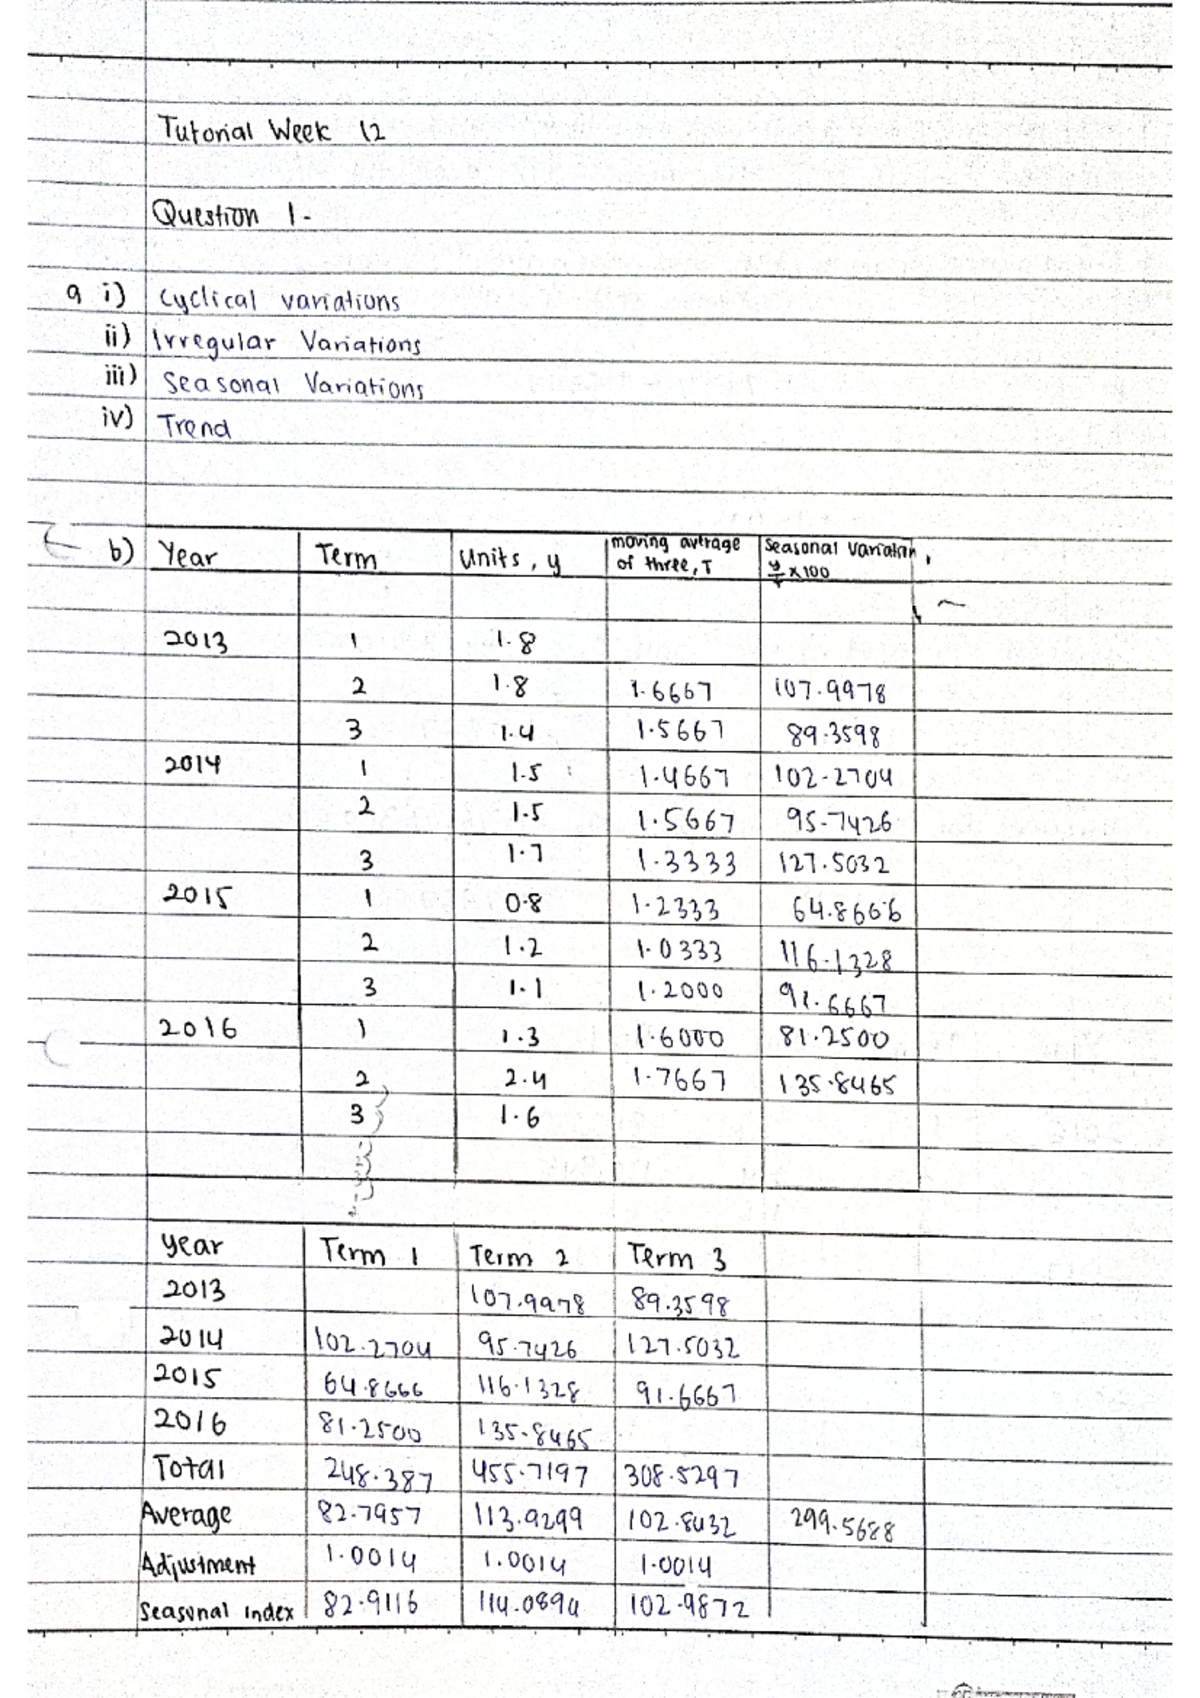 Tutorial Week 12
Question 1-
a i) Cyclical variations
ii) Irregular Variations
iii) Seasonal Variations
iv) Trend
b) Year Term Units, y moving average of three, T Seasonal Variation, y/T x100
2013 1 1.8
2 1.8 1.6667 107.9978
3 1.4 1.5667 89.3598
2014 1 1.5 1.4667 102.2704
2 1.5 1.5667 95.7426
3 1.7 1.3333 127.5032
2015 1 0.8 1.2333 64.8666
2 1.2 1.0333 116.1328
3 1.1 1.2000 91.6667
2016 1 1.3 1.6000 81.2500
2 2.4 1.7667 135.8465
3 1.6
year Term 1 Term 2 Term 3
2013 107.9978 89.3598
2014 102.2704 95.7426 127.5032
2015 64.8666 116.1328 91.6667
2016 81.2500 135.8465
Total 248.387 455.7197 308.5297
Average 82.7957 113.9299 102.8432 299.5688
Adjustment 1.0014 1.0014 1.0014
Seasonal index 82.9116 114.0894 102.9872